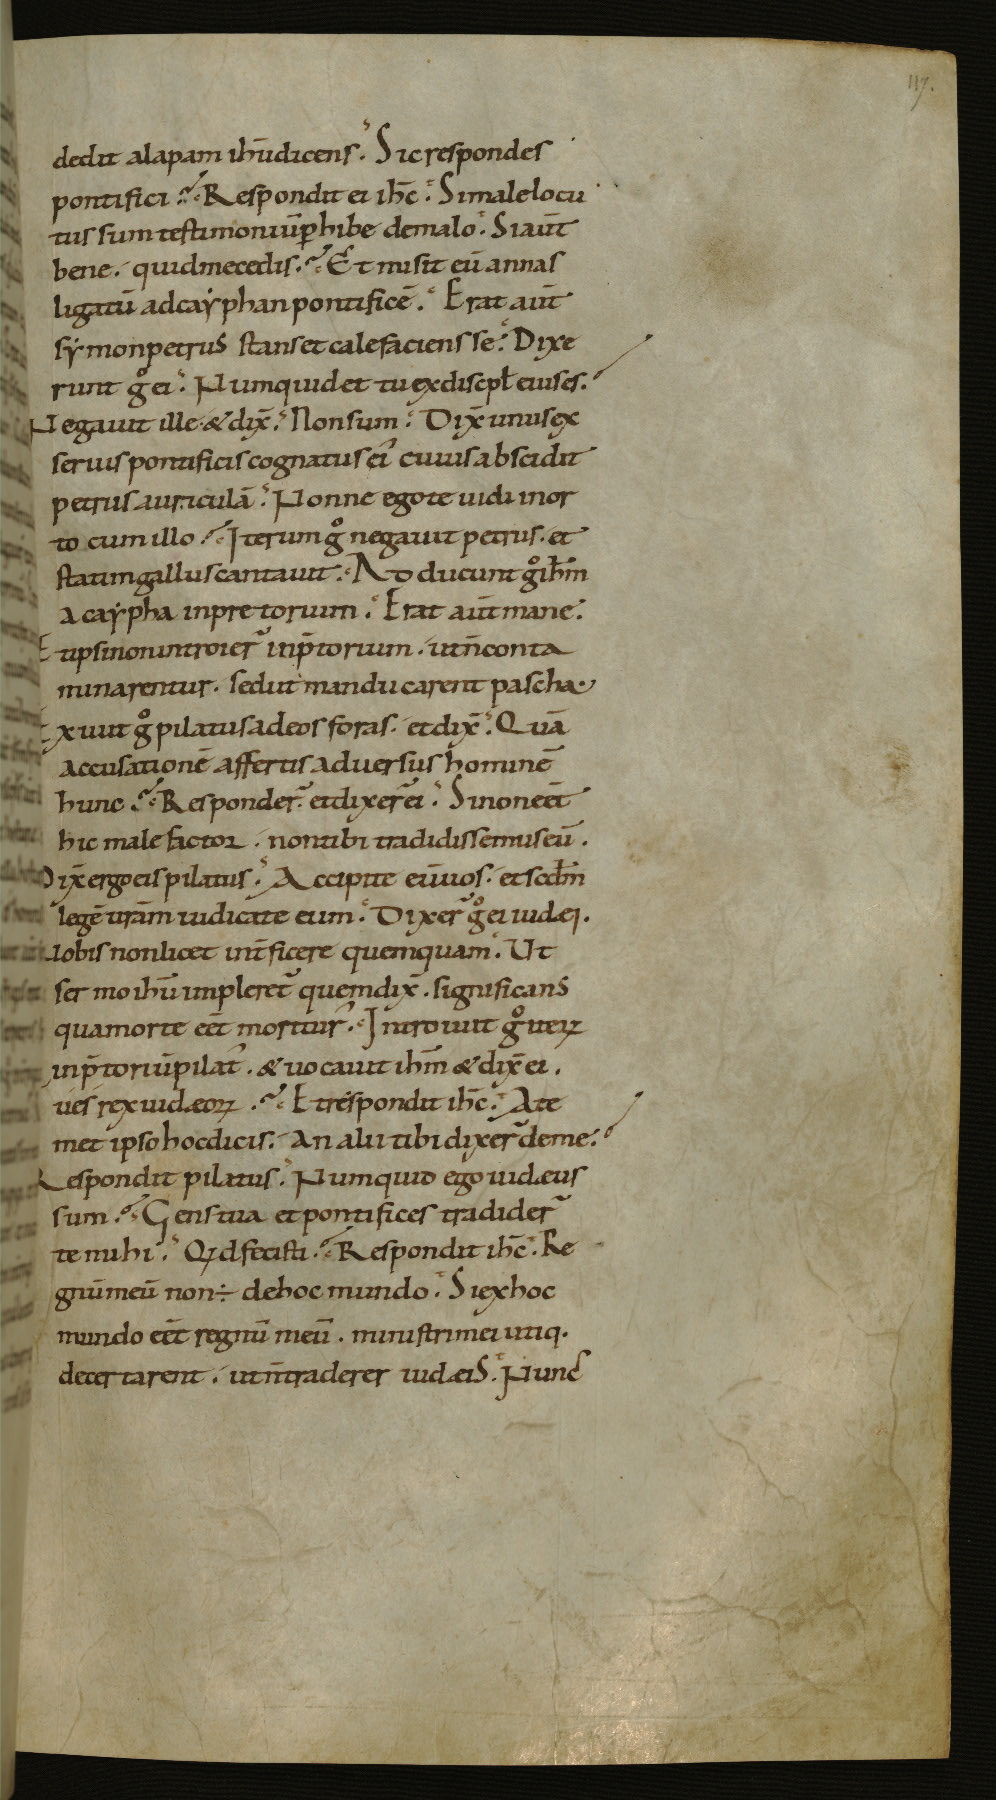 117.
dedit alapam ihū dicens. Sic respondes
pontifici? Respondit ei ihc̄. Si male locu
tus sum testimoniū ꝑhibe de malo. Si aūt
bene. quid me cedis? Et misit eū annas
ligatū ad cayphan pontificē. Erat aūt
symon petrus stans et calefaciens se. Dixe
runt gͦ ei. Numquid et tu ex discipł eius es?
Negauit ille & dix̄. Non sum. Dix̄ unus ex
seruis pontificis cognatus ei᷒ cuius abscidit
petrus auriculā. Nonne ego te uidi in or
to cum illo? Iterum gͦ negauit petrus. et
statim gallus cantauit. Adducunt gͦ ihm̄
a caypha in pretorium. Erat aūt mane.
Et ipsi non introier̄ in p̄torium. ut n̄ conta
minarentur. sed ut manducarent pascha.
Exiuit gͦ pilatus ad eos foras. et dix̄. Quā
accusationē affertis aduersus hominē
hunc? Responder̄ et dixer̄ ei. Si non eēt
hic malefactor. non tibi tradidissemus eū.
Dix̄ ergo eis pilatus. Accipite eū uos. et scdm̄
legē urām iudicate eum. Dixer̄ gͦ ei iudęi.
Nobis non licet int̄ficere quemquam. Ut
sermo ihū impleret᷑ quem dix̄. significans
qua morte eēt moritur᷒. Introiuit gͦ iteꝝ
in p̄toriū pilat᷒. & uocauit ihm̄ & dix̄ ei.
tu es rex iudæoꝝ? Et respondit ihc̄. A te
met ipso hoc dicis. An alii tibi dixer̄ de me?
Respondit pilatus. Numquid ego iudæus
sum? Gens tua et pontifices tradider̄
te mihi. Qd fecisti? Respondit ihc̄. Re
gnū meū non ÷ de hoc mundo. Si ex hoc
mundo eēt regnū meū. ministri mei utiq.
decertarent. ut n̄ traderer iudæis. Nunc